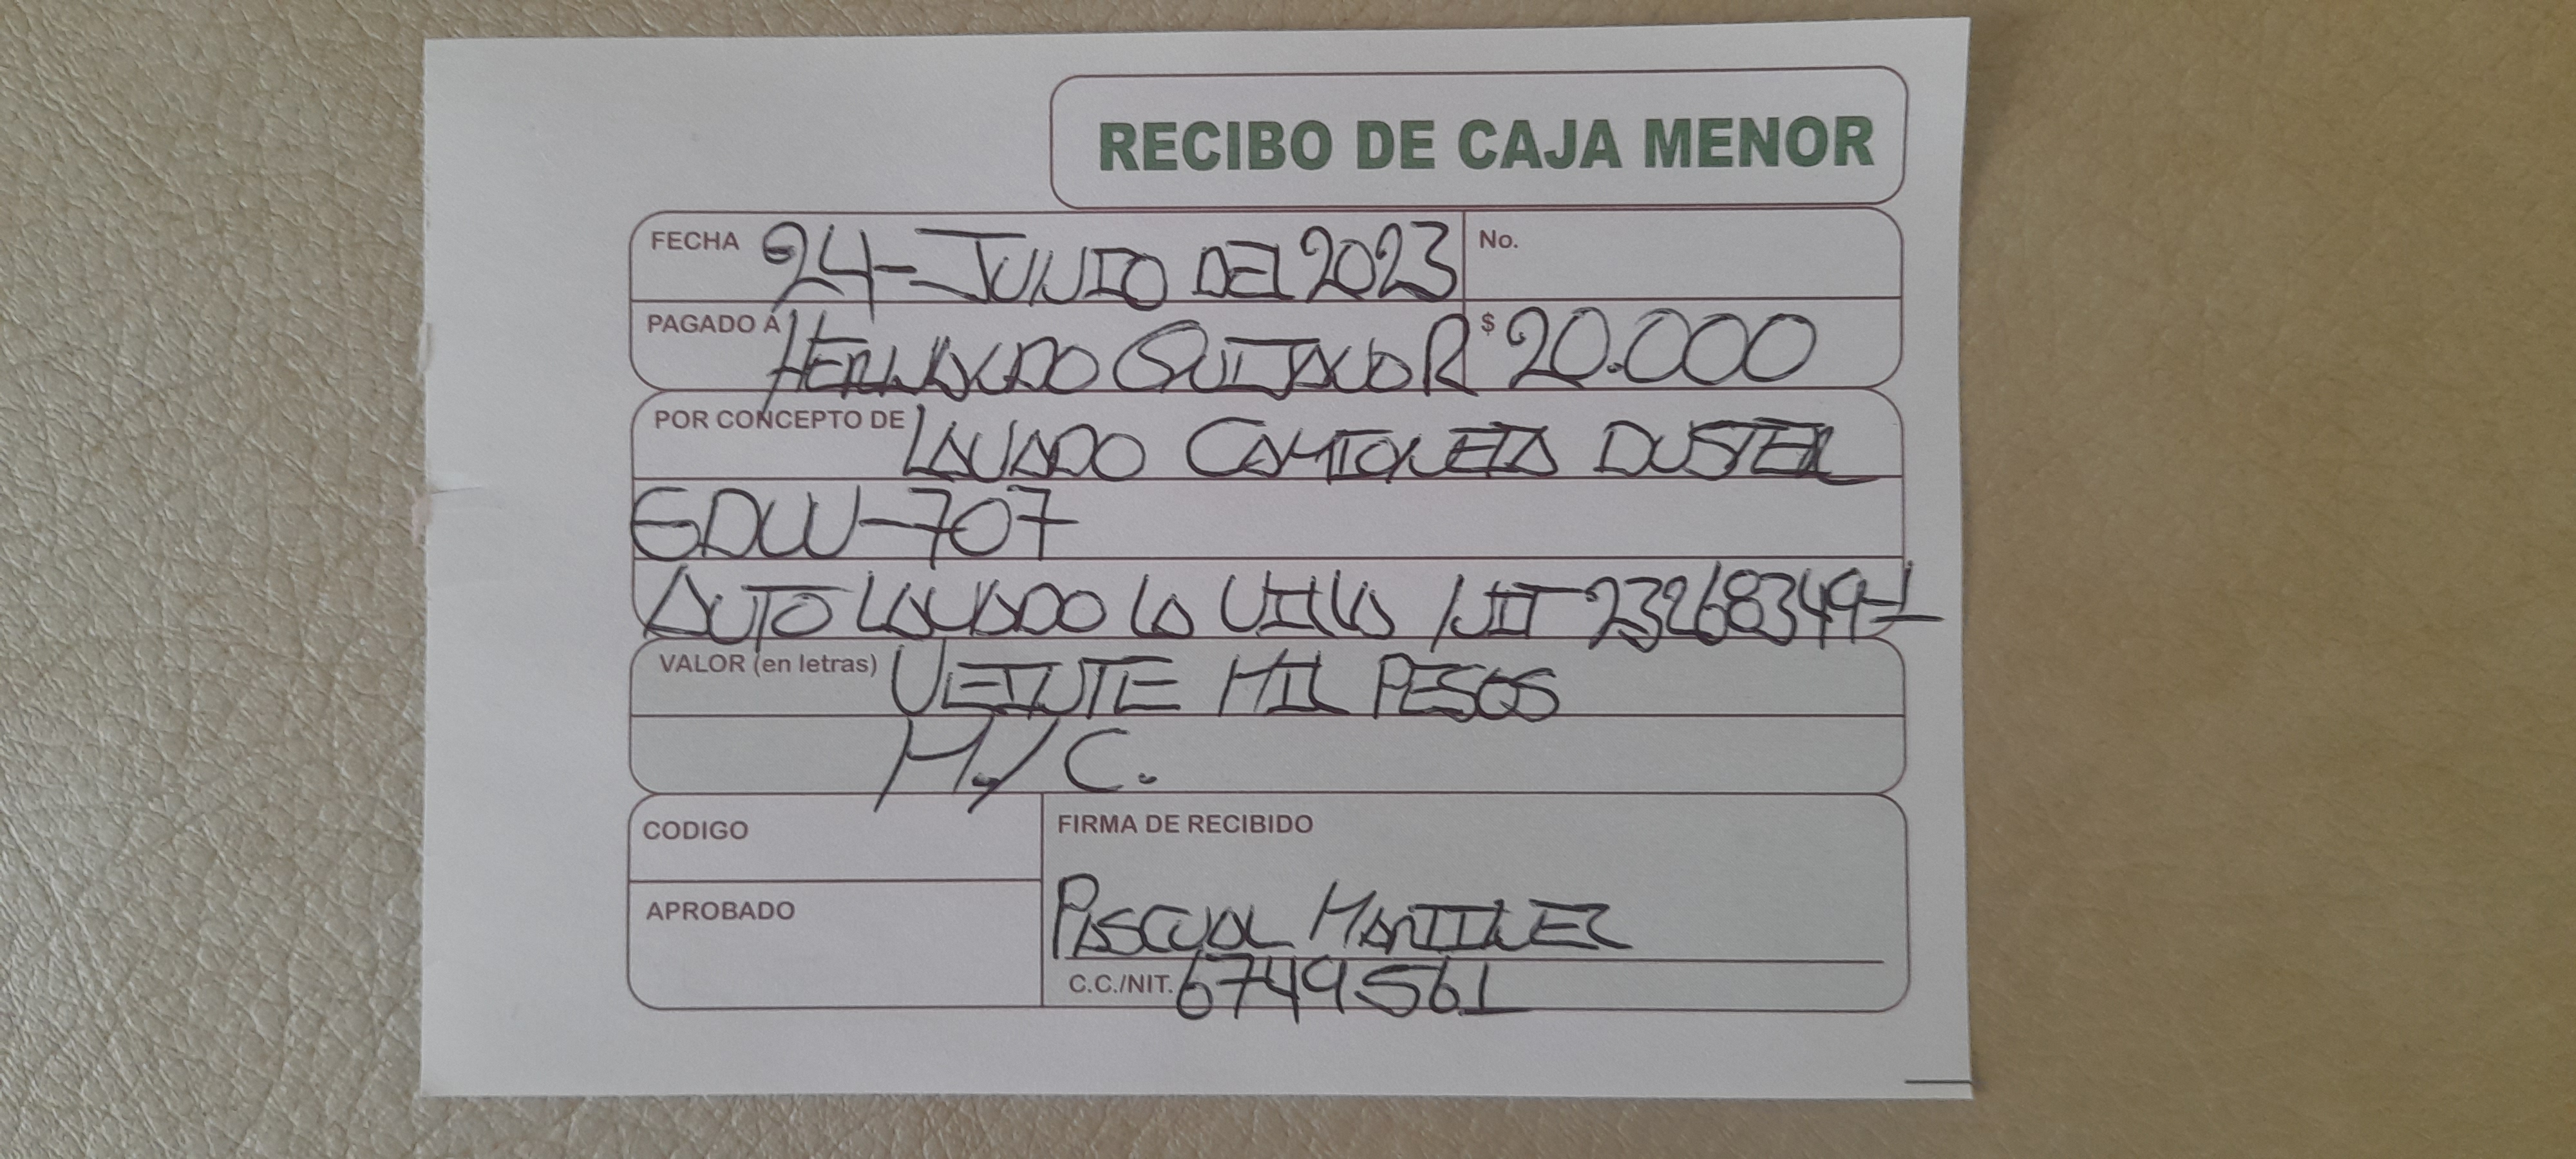 RECIBO DE CAJA MENOR
FECHA 24-JUNIO DEL 2023 No.
PAGADO A HERNANDO QUIJANO R $ 20.000
POR CONCEPTO DE LAVADO CAMIONETA DUSTER
GDW-707
AUTO LAVADO LA VILLA NIT 23268349-1
VALOR (en letras) VEINTE MIL PESOS
M/C.
CODIGO FIRMA DE RECIBIDO
APROBADO
PASCUAL MARTINEZ
C.C./NIT. 6749561